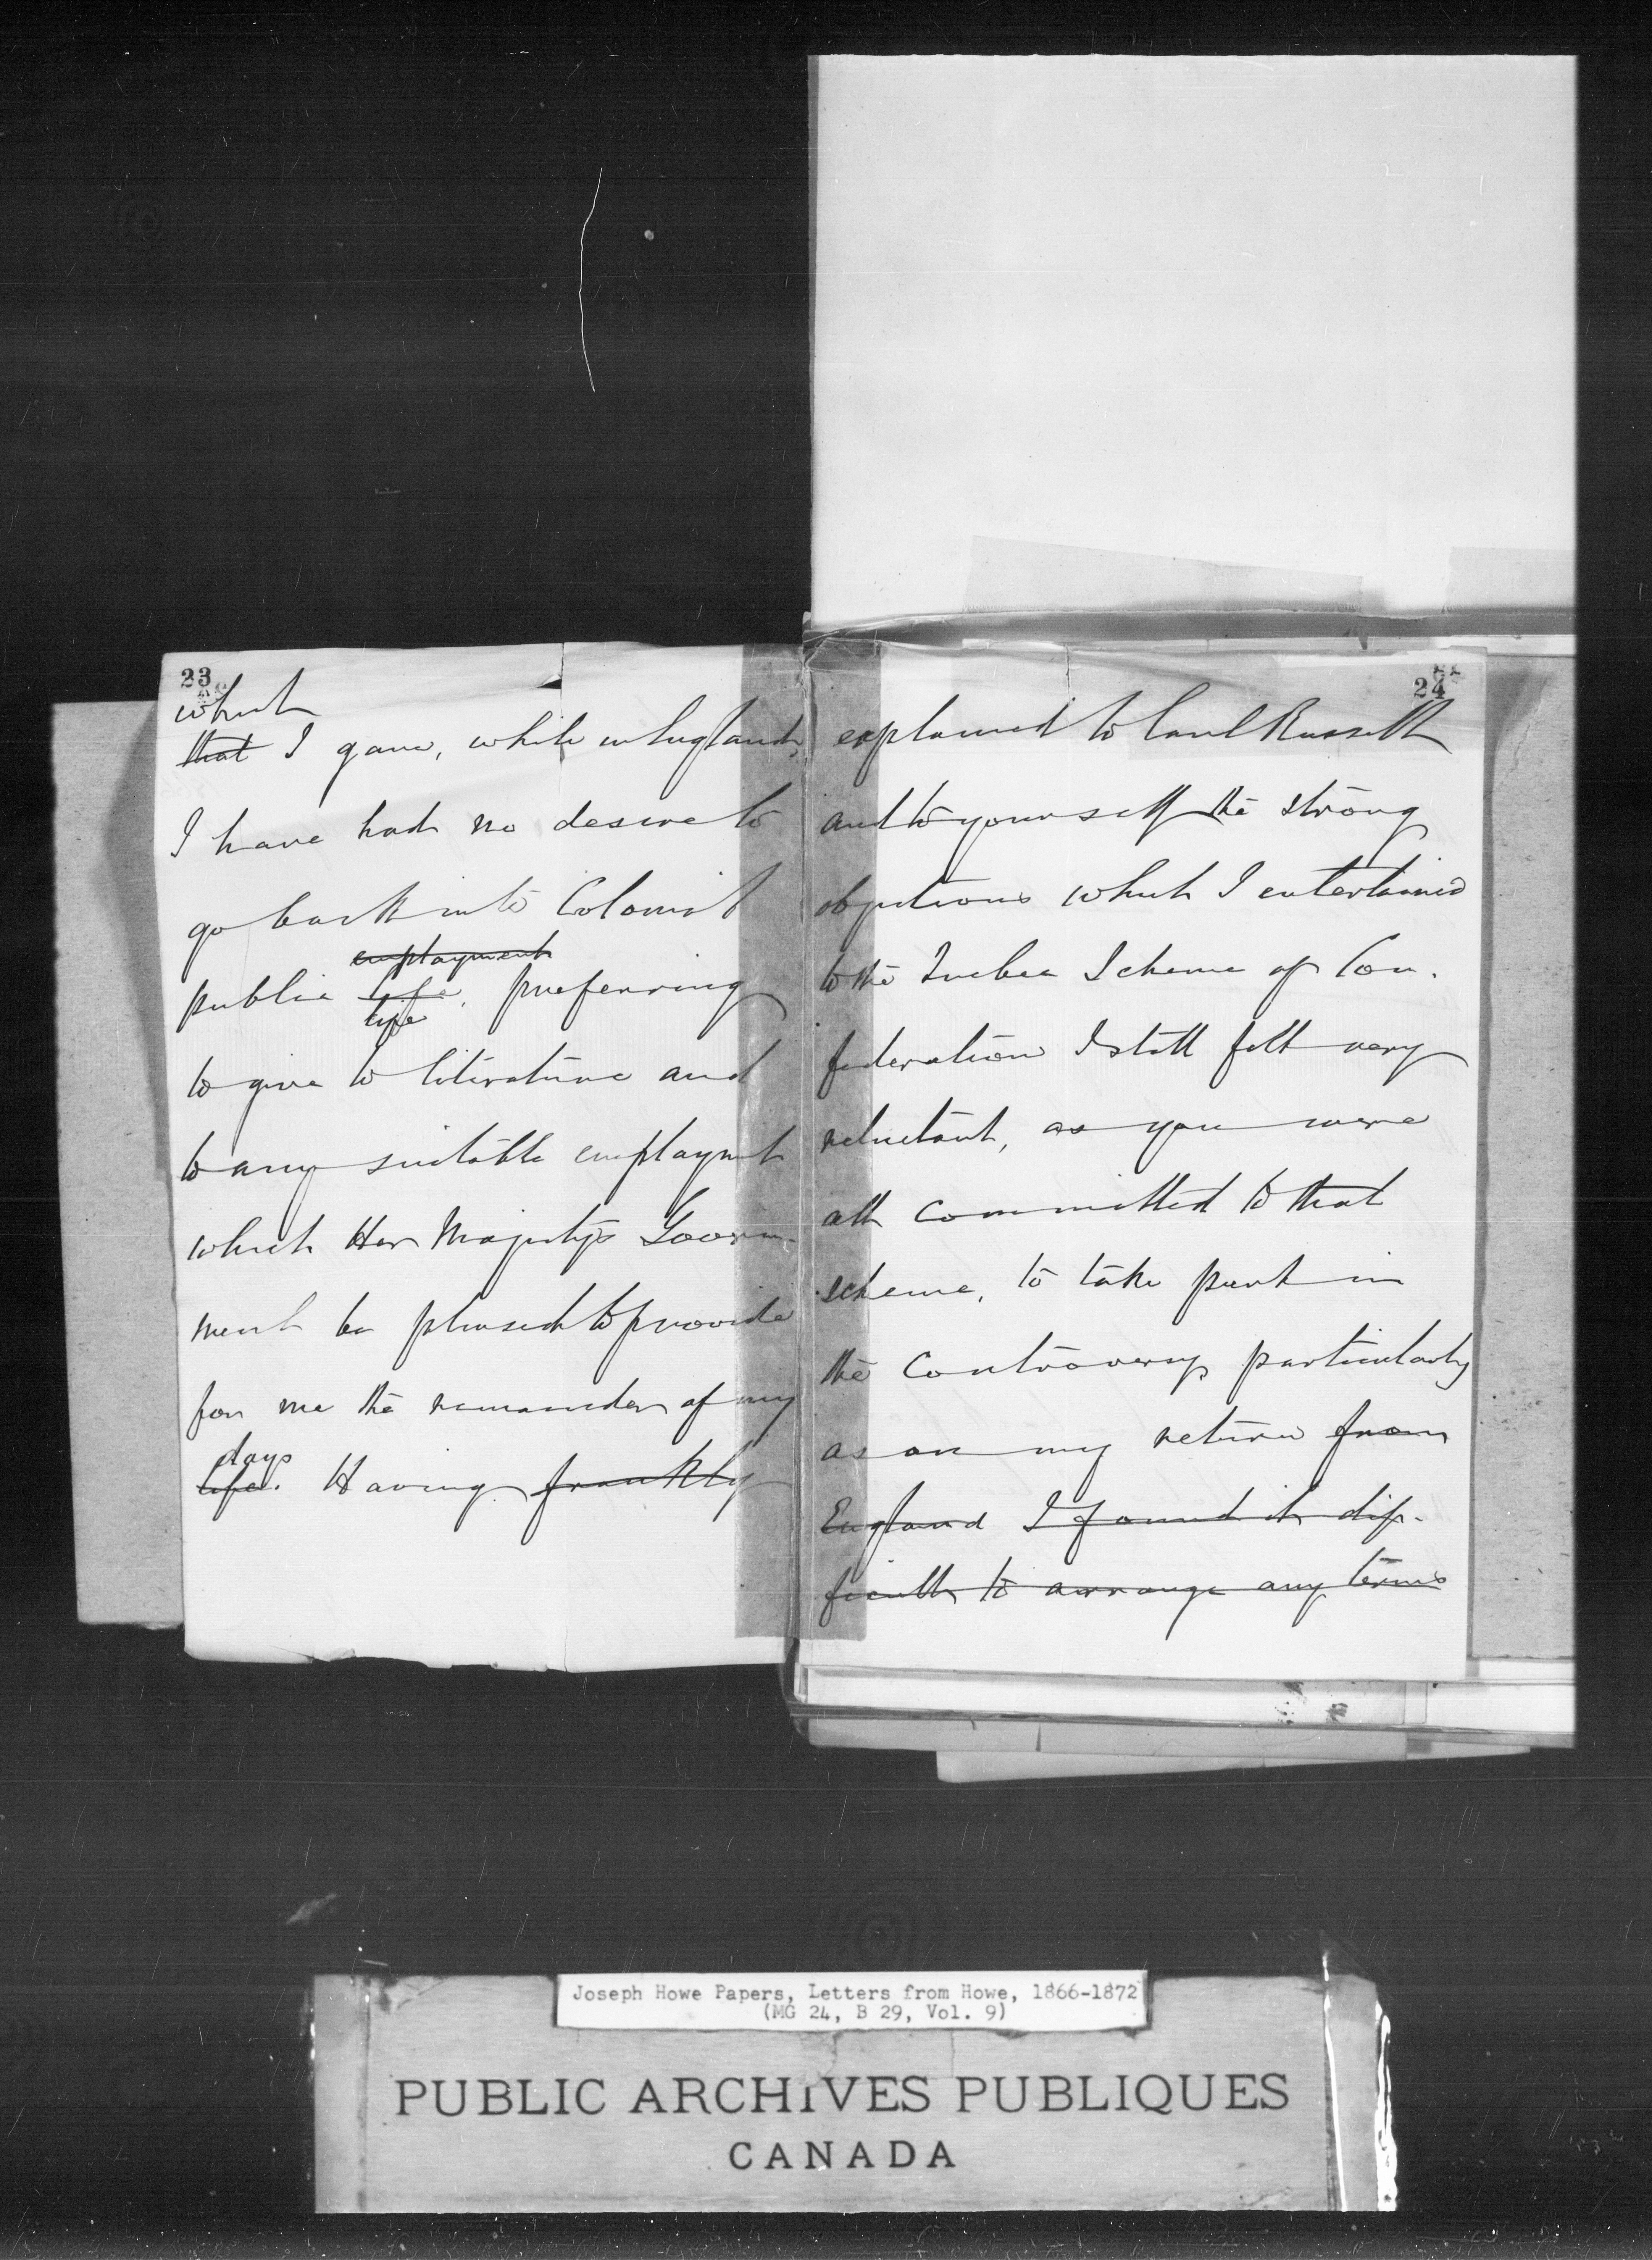 23
which
that I gave, while in England,
I have had no desire to
go back into Colonial
employment
public life, preferring
life
to give to literature and
to any suitable employmt
which Her Majesty's Govern-
ment be pleased to provide
for me the remainder of my
days
life. Having frankly
24
explained to Earl Russell
and to yourself the strong
objections which I entertained
to the Quebec Scheme of Con-
federation I still felt very
reluctant, as you were
all committed to that
scheme, to take part in
the Controversy, particularly
as on my return from
England I found it dif-
ficult to arrange any terms
Joseph Howe Papers, Letters from Howe, 1866-1872
(MG 24, B 29, Vol. 9)
PUBLIC ARCHIVES PUBLIQUES
CANADA